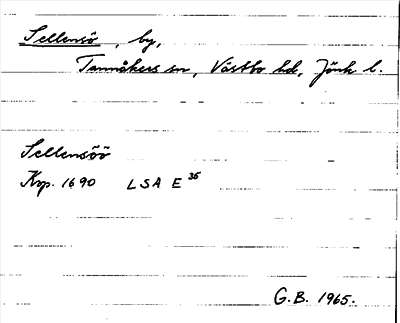 Sellensö, by,
Tannåkers sn, Västbo hd, Jönk l.
Sellensöö
Kop. 1690 LSA E 36
G.B. 1965.